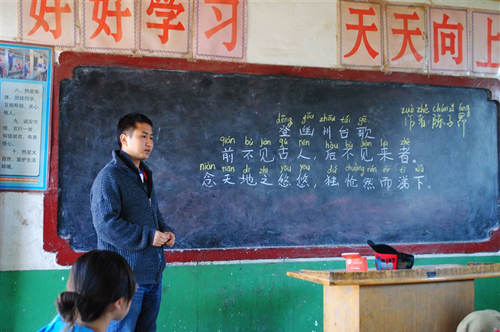 好好学习 天天向上
dēng yōu zhōu tái gē zuò zhě chén zǐ áng
登幽州台歌 作者:陈子昂
qián bù jiàn gǔ rén hòu bù jiàn lái zhě
前不见古人,后不见来者。
niàn tiān dì zhī yōu yōu dú chuàng rán ér tì xià
念天地之悠悠,独怆然而涕下。